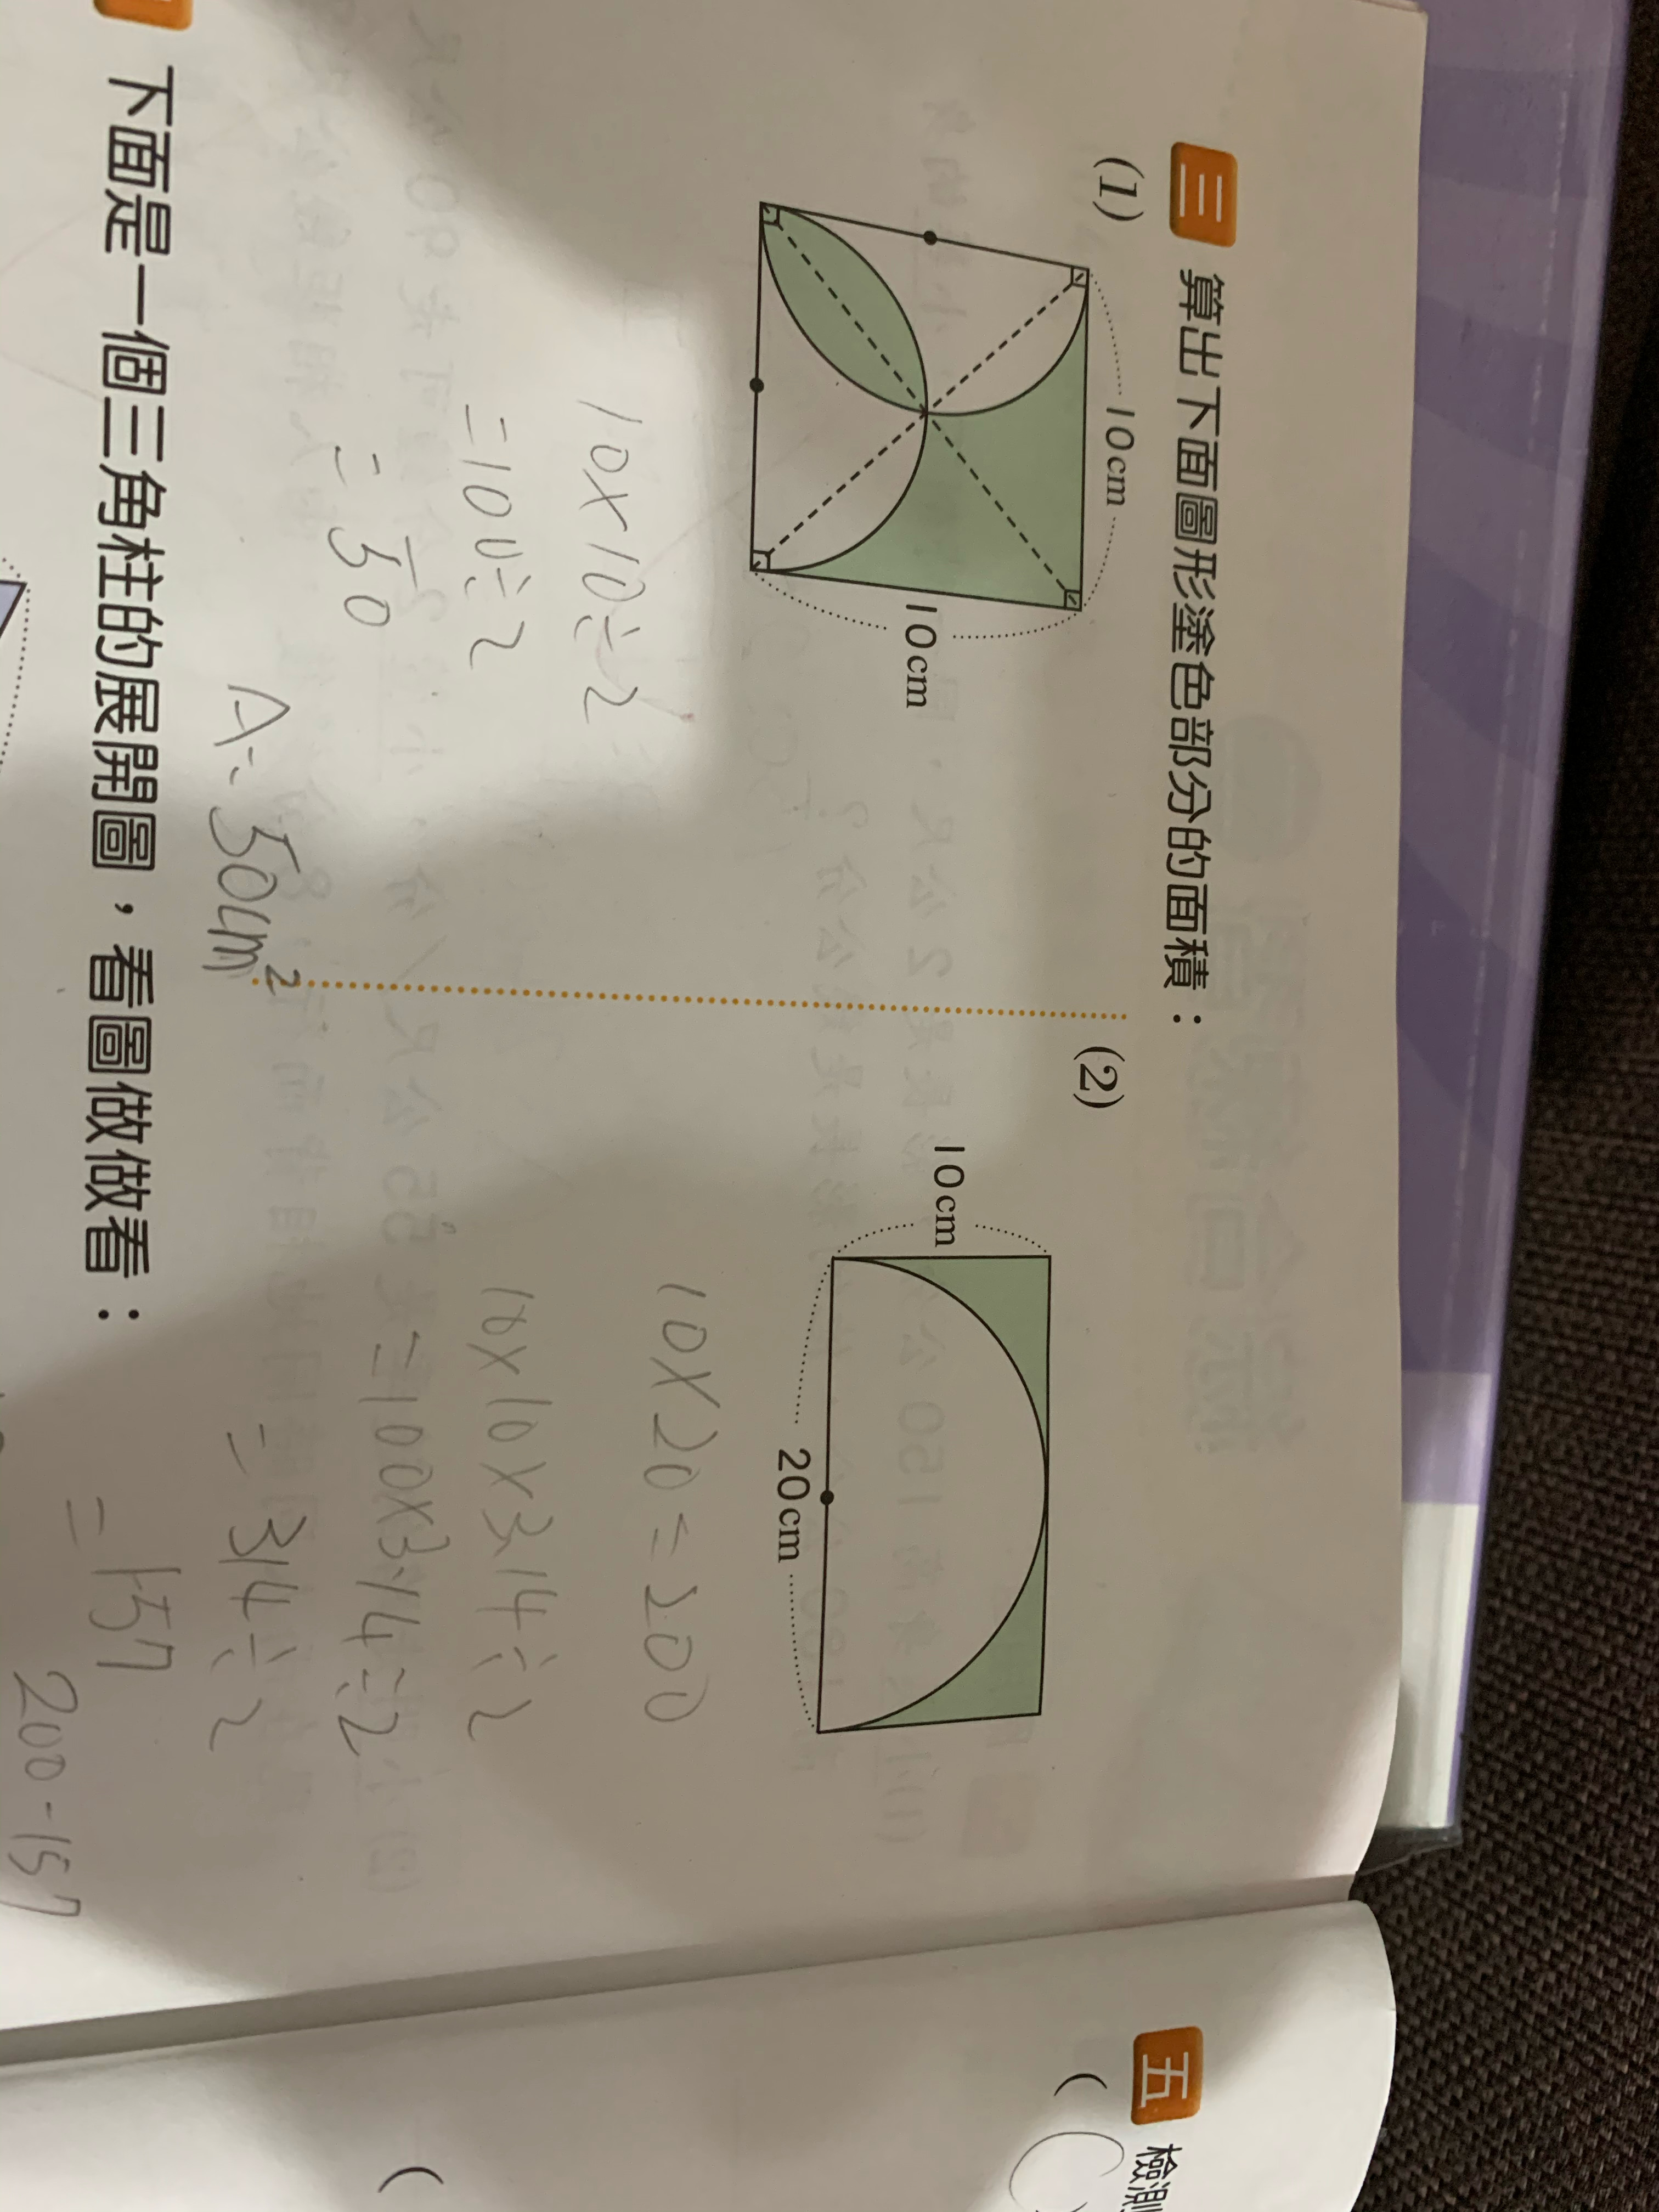 三 算出下面圖形塗色部分的面積：
(1)
10cm
10cm
10×10÷2
=100÷2
=50
A:50cm²
(2)
10cm
20cm
10×20=200
10×10×3.14÷2
=100×3.14÷2
=314÷2
=157
200-157
下面是一個三角柱的展開圖，看圖做做看：
五 檢測
(
(